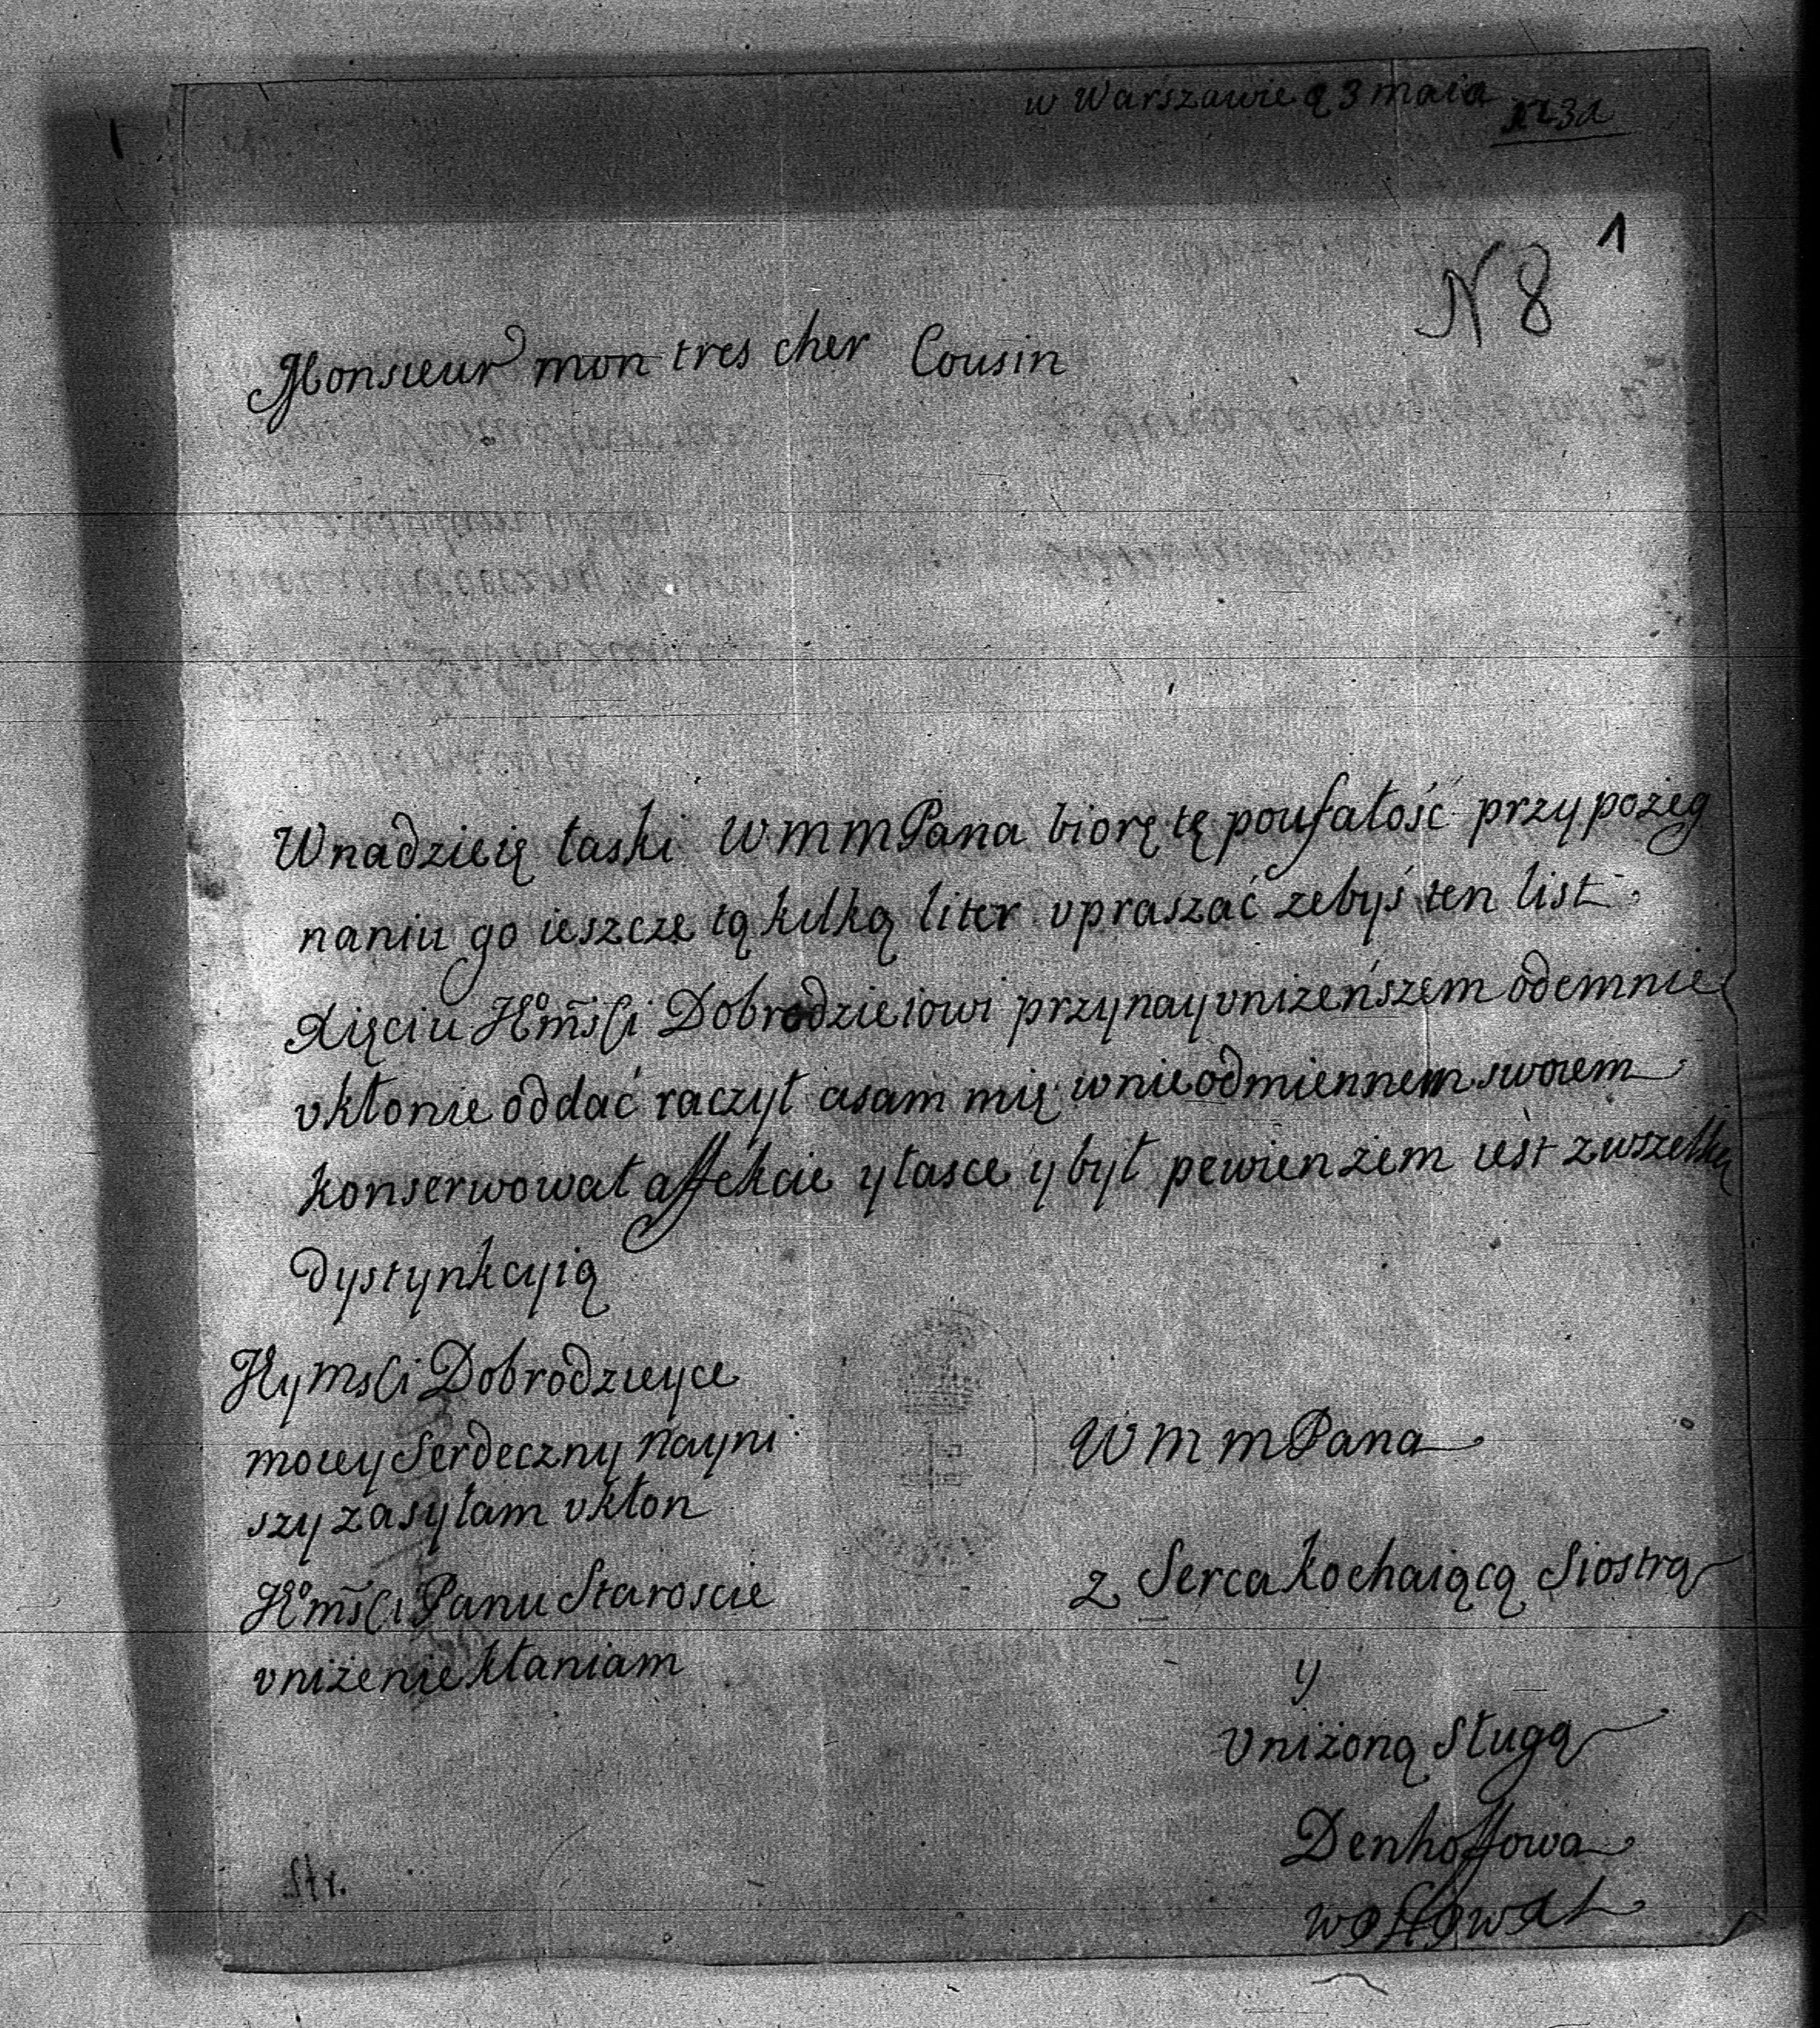 w Warszawie 9 3 maia
1731
1
N 8
Monsieur mon tres cher Cousin
Wnadzieię łaski WMMPana biorę tę poufałość przy pożeg
naniu go ieszcze tą kilką liter vpraszać zebyś ten list
Xięciu JE͠mści Dobrodzieiowi przy nayvniżeńszem odemnie
vkłonie oddać raczył asam mię wnieodmiennem swoiem
konserwował affekcie y łasce y był pewien żem iest zwszelką
dystynkcyią
JEymści Dobrodzieyce
moiey Serdeczny nayni
szy zasyłam vkłon
JE͠mści Panu Staroscie
vniżenie kłaniam
WMMPana
z Serca kochaiącą Siostrą
y
vniżoną Sługą
Denhoffowa
Str.